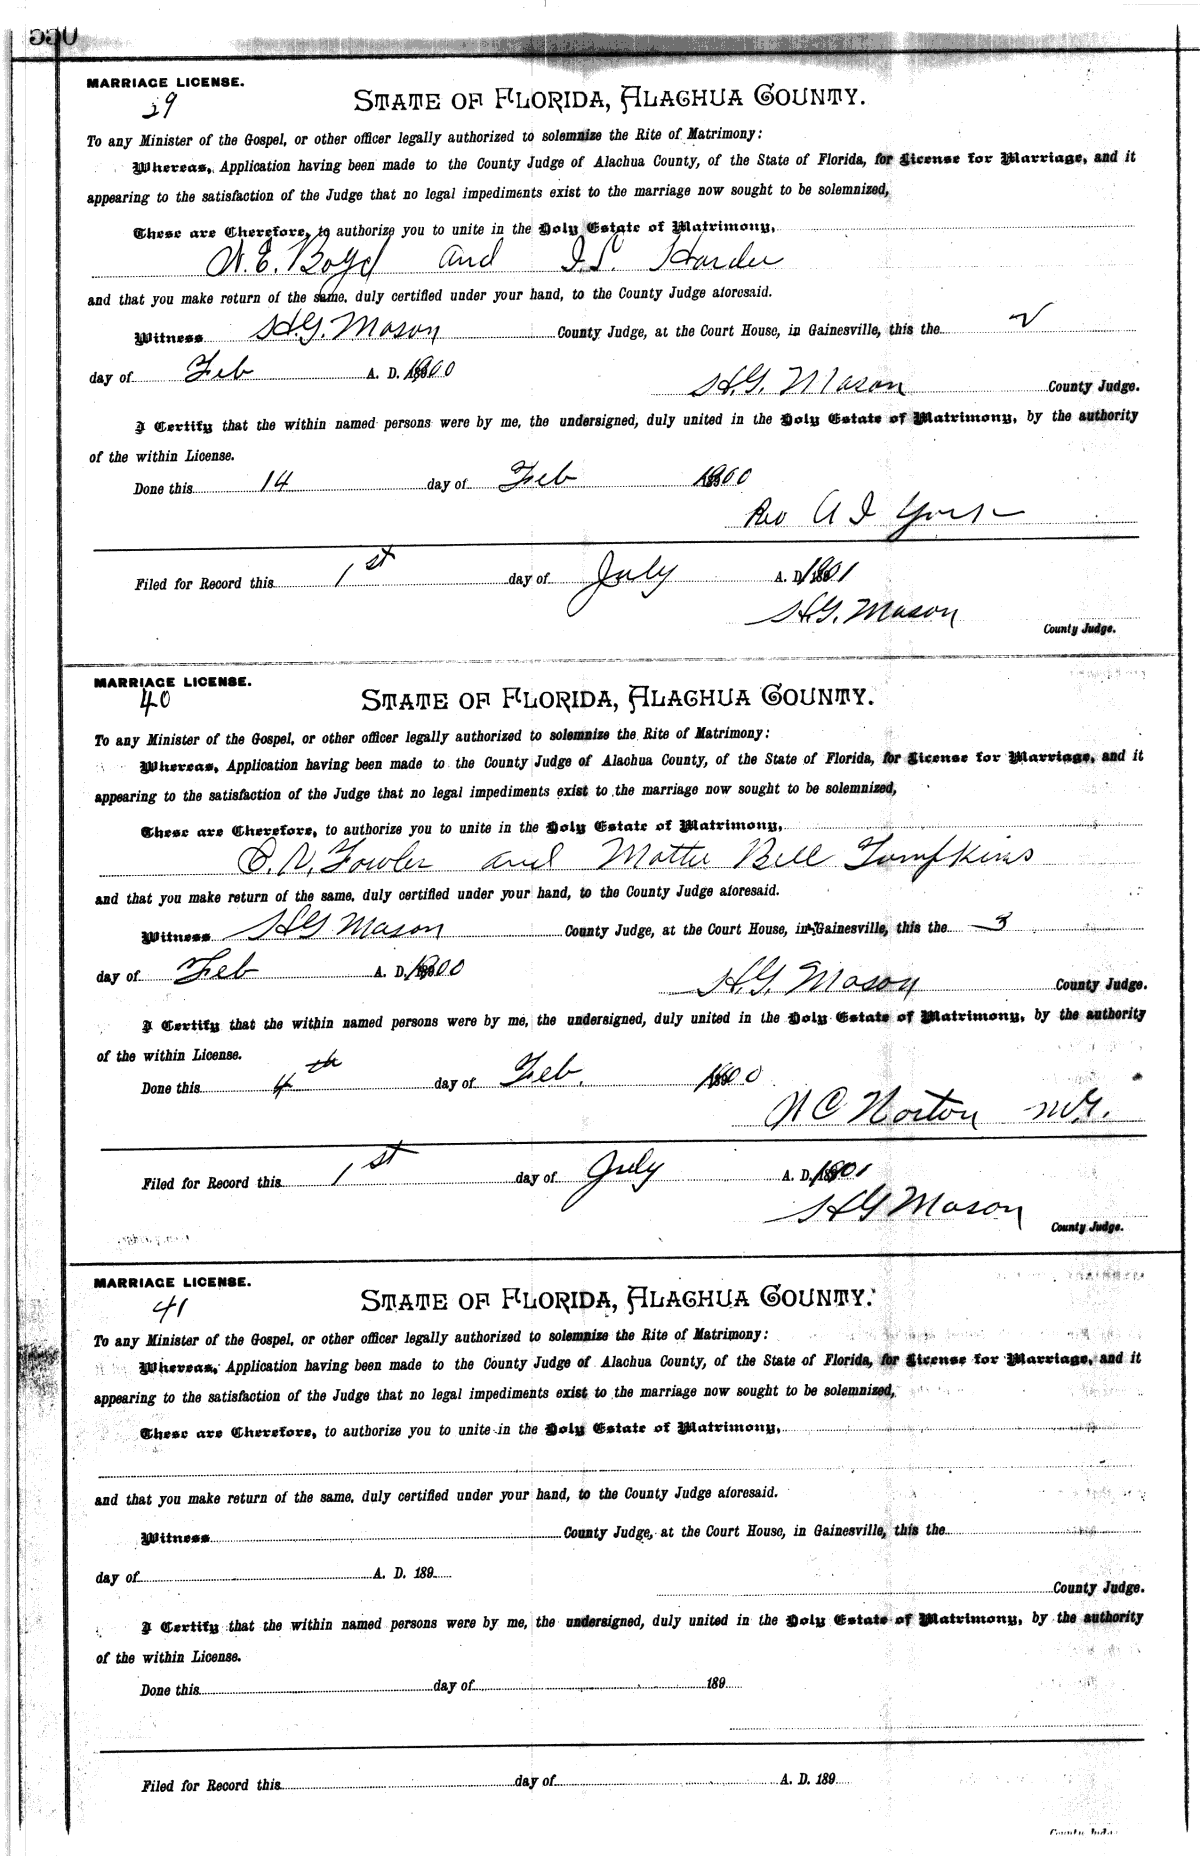 550
MARRIAGE LICENSE.
39
STATE OF FLORIDA, ALACHUA COUNTY.
To any Minister of the Gospel, or other officer legally authorized to solemnize the Rite of Matrimony:
Whereas, Application having been made to the County Judge of Alachua County, of the State of Florida, for License for Marriage, and it
appearing to the satisfaction of the Judge that no legal impediments exist to the marriage now sought to be solemnized,
These are Therefore, to authorize you to unite in the Holy Estate of Matrimony,
W. E. Boyd and I. L. Harder
and that you make return of the same, duly certified under your hand, to the County Judge aforesaid.
Witness H.G. Mason County Judge, at the Court House, in Gainesville, this the 2
day of Feb A. D. 1900
H.G. Mason County Judge.
I Certify that the within named persons were by me, the undersigned, duly united in the Holy Estate of Matrimony, by the authority
of the within License.
Done this 14 day of Feb 1900
Rev A I
Filed for Record this 1st day of July A. D. 1901
H.G. Mason
County Judge.
MARRIAGE LICENSE.
40
STATE OF FLORIDA, ALACHUA COUNTY.
To any Minister of the Gospel, or other officer legally authorized to solemnize the Rite of Matrimony:
Whereas, Application having been made to the County Judge of Alachua County, of the State of Florida, for License for Marriage, and it
appearing to the satisfaction of the Judge that no legal impediments exist to the marriage now sought to be solemnized,
These are Therefore, to authorize you to unite in the Holy Estate of Matrimony,
Fowler and Mattie Bell Tompkins
and that you make return of the same, duly certified under your hand, to the County Judge aforesaid.
Witness H G Mason County Judge, at the Court House, in Gainesville, this the 3
day of Feb A. D. 1900
H.G. Mason County Judge.
I Certify that the within named persons were by me, the undersigned, duly united in the Holy Estate of Matrimony, by the authority
of the within License.
Done this 4th day of Feb. 1900
W C Norton M.G.
Filed for Record this 1st day of July A. D. 1901
H G Mason
County Judge.
MARRIAGE LICENSE.
41
STATE OF FLORIDA, ALACHUA COUNTY.
To any Minister of the Gospel, or other officer legally authorized to solemnize the Rite of Matrimony:
Whereas, Application having been made to the County Judge of Alachua County, of the State of Florida, for License for Marriage, and it
appearing to the satisfaction of the Judge that no legal impediments exist to the marriage now sought to be solemnized,
These are Therefore, to authorize you to unite in the Holy Estate of Matrimony,
and that you make return of the same, duly certified under your hand, to the County Judge aforesaid.
Witness County Judge, at the Court House, in Gainesville, this the
day of A. D. 189
County Judge.
I Certify that the within named persons were by me, the undersigned, duly united in the Holy Estate of Matrimony, by the authority
of the within License.
Done this day of 189
Filed for Record this day of A. D. 189
County Judge